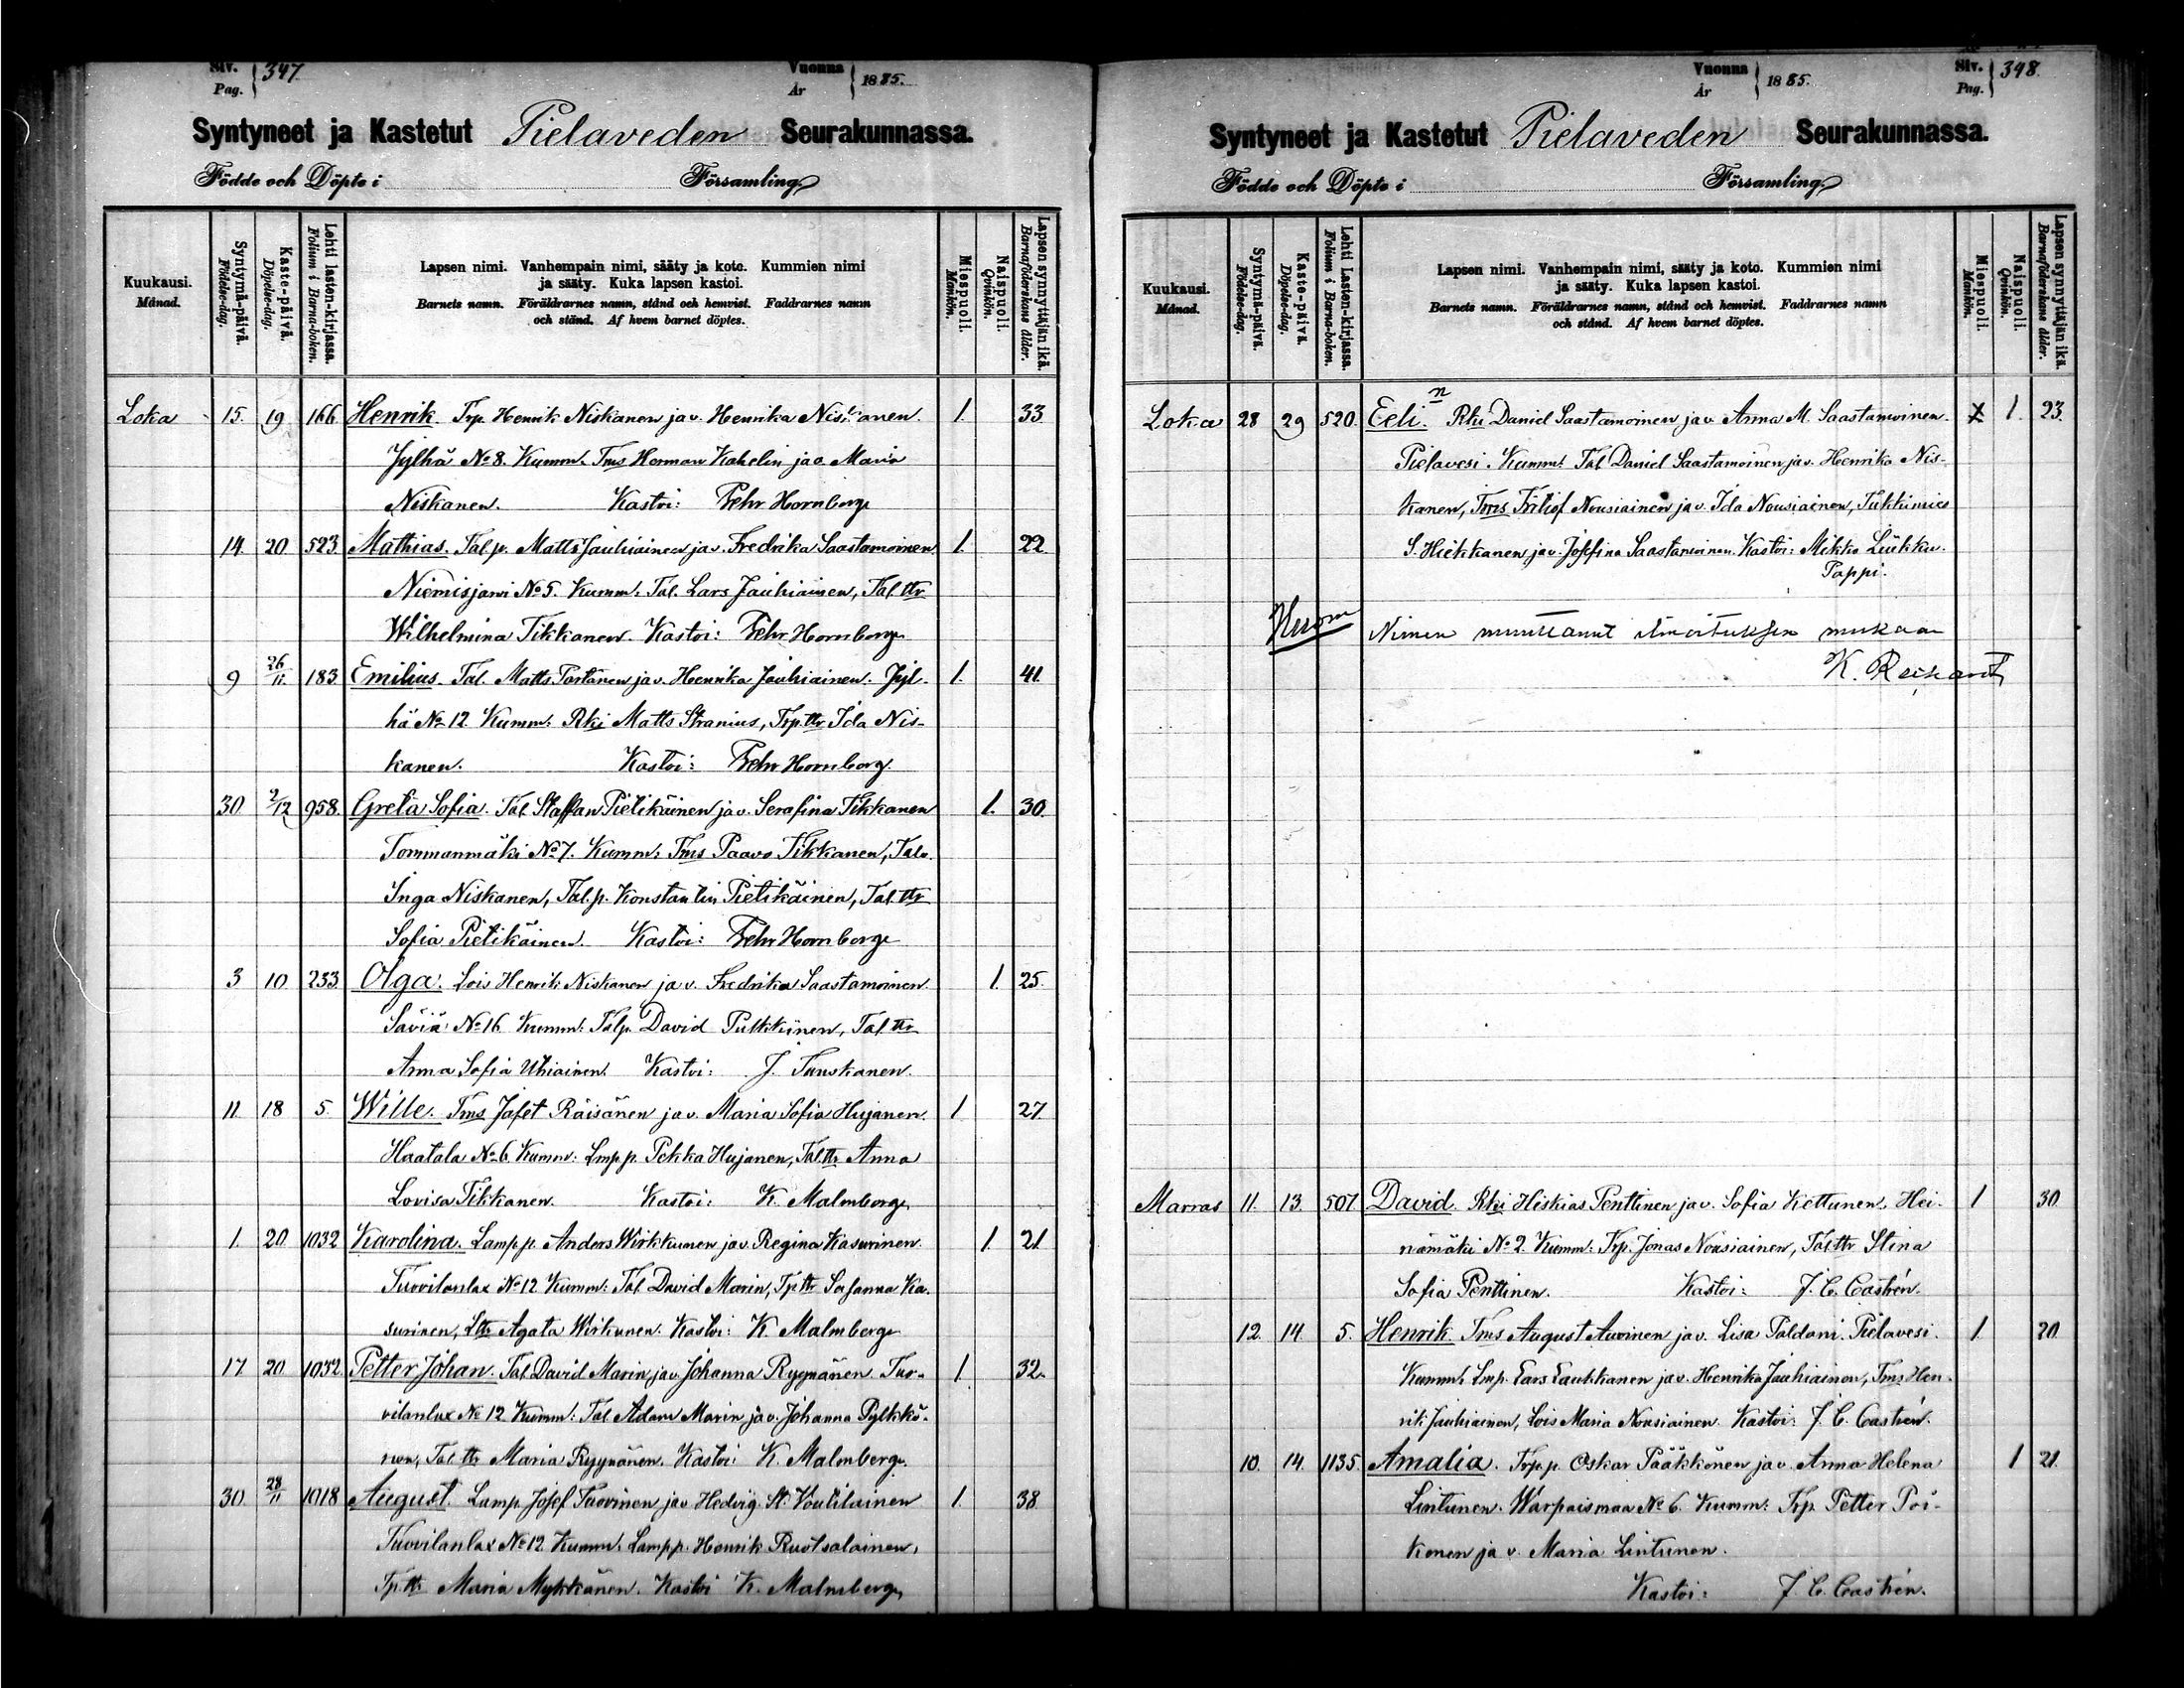 Siv. Pag. 347
Vuonna År 1885.
Syntyneet ja Kastetut Pielaveden Seurakunnassa.
Födde och Döpte i Församling.
Kuukausi. Månad.
Syntymä-päivä. Födelse-dag.
Kaste-päivä. Döpelse-dag.
Lehti lasten-kirjassa. Folium i Barna-boken.
Lapsen nimi. Vanhempain nimi, sääty ja koto. Kummien nimi
ja sääty. Kuka lapsen kastoi.
Barnets namn. Föräldrarnes namn, stånd och hemvist. Faddrarnes namn
och stånd. Af hvem barnet döptes.
Miespuoli. Mankön.
Naispuoli. Qvinkön.
Lapsen synnyttäjän ikä. Barnaföderskans ålder.
Loka 15. 19 166 Henrik. Trp. Henrik Niskanen ja v. Henrika Niskanen. 1. 33
Jylhä No 8. Kumm. Tms Herman Kahelin ja v. Maria
Niskanen. Kastoi: Fehr Hornborg
14. 20 523 Mathias. Tal.p. Matts Jauhiainen ja v. Fredrika Saastamoinen 1. 22
Niemisjärvi No 5. Kumm: Tal. Lars Jauhiainen, Tal.ttr
Wilhelmina Tikkanen. Kastoi: Fehr Hornborg
9 26/11. 183 Emilius. Tal. Matts Tortanen ja v. Henrika Jauhiainen. Jyl- 1. 41.
hä No 12 Kumm: Rki Matts Stranius, Trp.ttr Ida Nis-
kanen. Kastoi: Fehr Hornborg.
30. 2/12 958. Greta Sofia. Tal. Staffan Pietikäinen ja v. Serafina Tikkanen 1. 30.
Tommanmäki No 7. Kumm: Tms Paavo Tikkanen, Talo.
Inga Niskanen, Tal.p. Konstantin Pietikäinen, Tal.ttr
Sofia Pietikäinen. Kastoi: Fehr Hornborg
3 10. 233. Olga. Lois Henrik Niskanen ja v. Fredrika Saastamoinen. 1. 25.
Säviä No 16 Kumm: Talp. David Pulkkinen, Tal.ttr
Anna Sofia Uhiainen. Kastoi: J. Tunskanen.
11. 18 5. Wille. Tms Jafet Räisänen ja v. Maria Sofia Hujanen. 1 27.
Haatala No 6 Kumm: Lmp.p. Pekka Hujanen, Tal.ttr Anna
Lovisa Tikkanen. Kastoi: K. Malmberg.
1. 20. 1032 Karolina. Lamp.p. Anders Wirkkunen ja v. Regina Kasurinen. 1. 21.
Tuovilanlax No 12 Kumm: Tal David Marin, Tp.ttr Susanna Ka-
surinen, Lttr Agata Wirkunen. Kastoi: K. Malmberg
17. 20. 1032. Petter Johan. Tal. David Marin ja v. Johanna Ryynänen. Tuo- 1. 32.
vilanlax No 12 Kumm: Tal Adam Marin ja v. Johanna Pylkkö-
nen, Tal.ttr Maria Ryynänen. Kastoi: K. Malmberg.
30. 28/11 1018 August. Lamp. Josef Tuovinen ja v. Hedvig St. Voutilainen 1. 38
Tuovilanlax No 12 Kumm. Lamp.p. Henrik Ruotsalainen,
Tp.ttr Maria Mykkänen. Kastoi K. Malmberg.
Siv. Pag. 348.
Vuonna År 1885.
Syntyneet ja Kastetut Pielaveden Seurakunnassa.
Födde och Döpte i Församling.
Kuukausi. Månad.
Syntymä-päivä. Födelse-dag.
Kaste-päivä. Döpelse-dag.
Lehti Lasten-kirjassa. Folium i Barna-boken.
Lapsen nimi. Vanhempain nimi, sääty ja koto. Kummien nimi
ja sääty. Kuka lapsen kastoi.
Barnets namn. Föräldrarnes namn, stånd och hemvist. Faddrarnes namn
och stånd. Af hvem barnet döptes.
Miespuoli. Mankön.
Naispuoli. Qvinkön.
Lapsen synnyttäjän ikä. Barnaföderskans ålder.
n
Loka 28 29 520. Eeli. Rki Daniel Saastamoinen ja v. Anna M. Saastamoinen. 1 23.
Pielavesi. Kumm: Tal. Daniel Saastamoinen ja v. Henrika Nis-
kanen, Tms Fritiof Nousiainen ja v. Ida Nousiainen, Tukkimies
S. Hiekkanen ja v. Josefina Saastamoinen. Kastoi: Mikko Liikku.
Pappi.
Huom Nimen muuttanut ilmoituksen mukaan
K.
Marras 11. 13. 507 David. Rki Heskias Penttinen ja v. Sofia Kettunen. Hei- 1 30.
nämäki No 2. Kumm: Trp. Jonas Nousiainen, Tal.ttr Stina
Sofia Penttinen. Kastoi: J. C. Castrén.
12. 14. 5. Henrik. Tms August Auvinen ja v. Lisa Taldani. Pielavesi. 1. 20.
Kumm. Lmp. Lars Laukkanen ja v. Henrika Jauhiainen, Tms Hen-
rik Jauhiainen, Lois Maria Nousiainen. Kastoi: J. C. Castrén.
10. 14. 1135. Amalia. Trp.p. Oskar Pääkkönen ja v. Anna Helena 1 21.
Lintunen. Warpaismaa No 6. Kumm: Trp. Petter Poi-
konen ja v. Maria Lintunen.
Kastoi: J. C. Castrén.